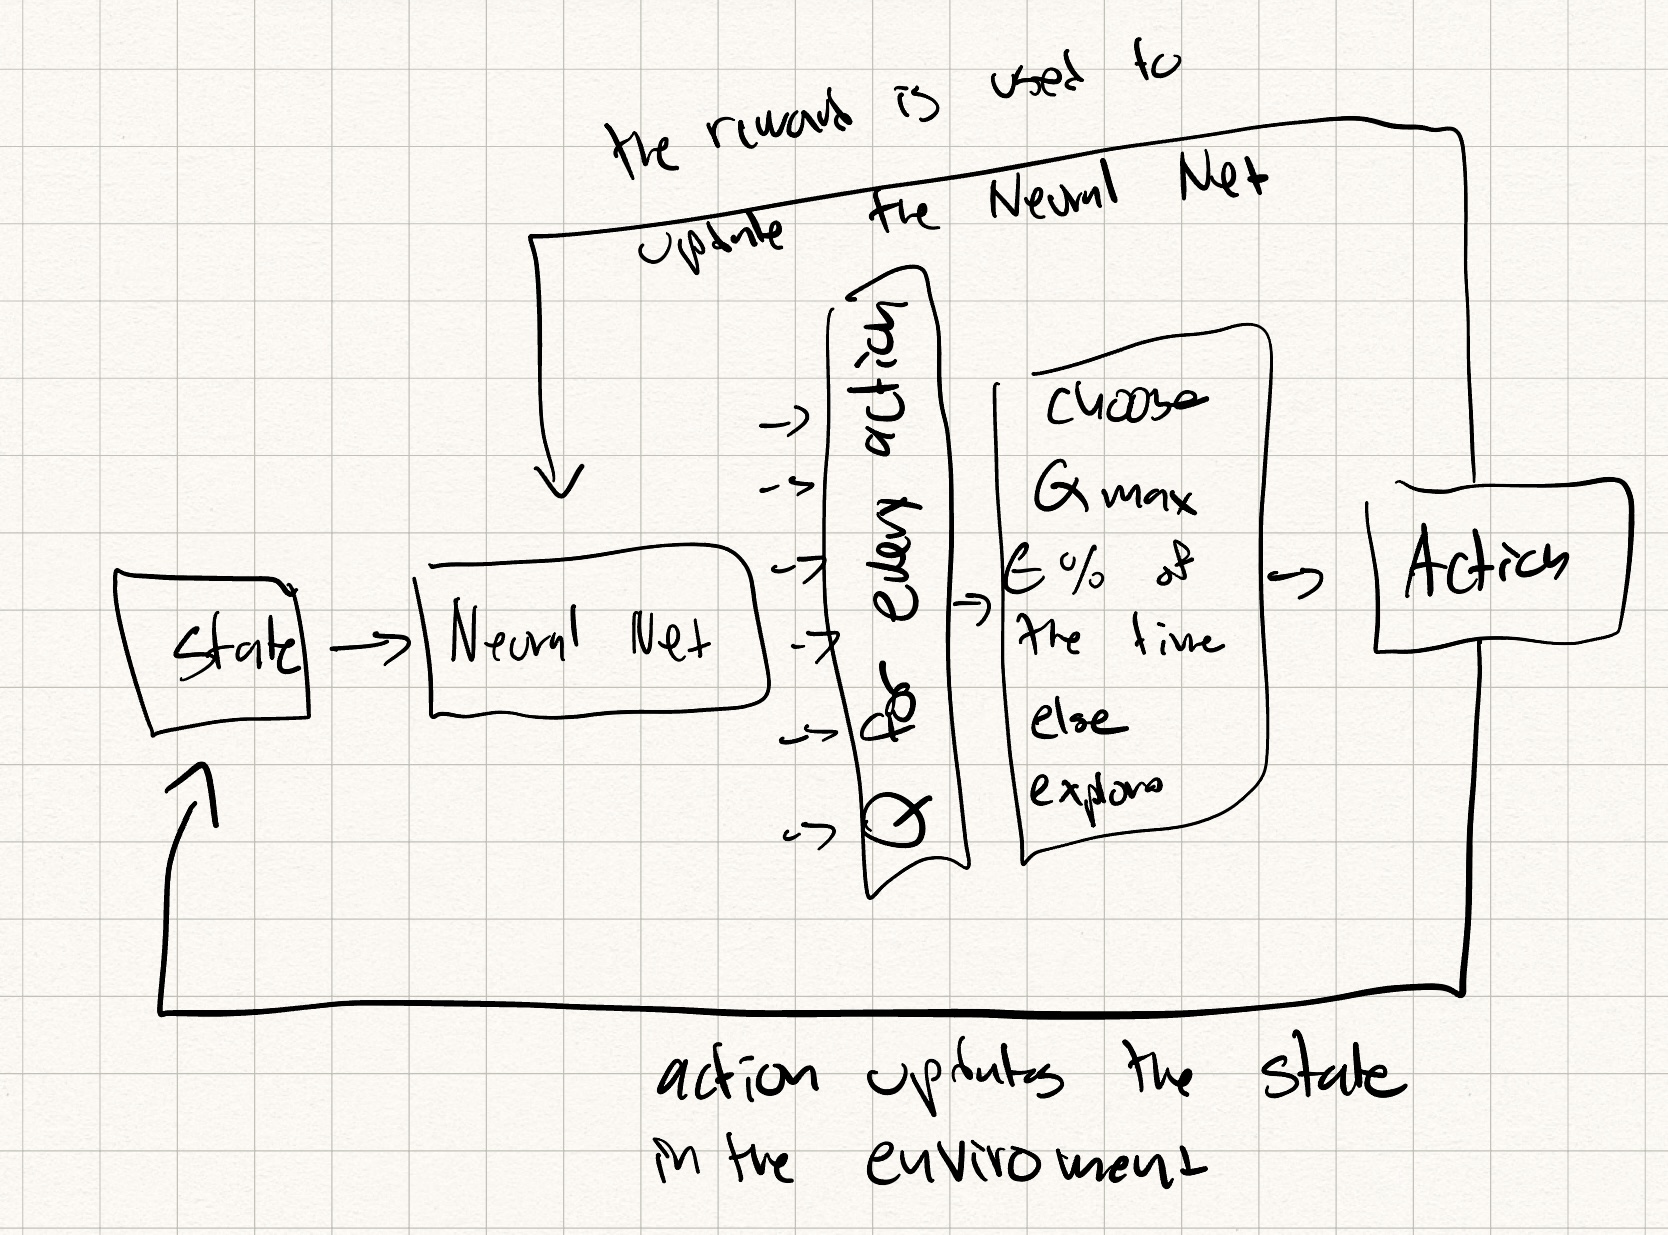 the reward is used to
update the Neural Net
State
Neural Net
Q to every action
choose
Q max
ε % of
the time
else
explore
Action
action updates the state
in the enviroment